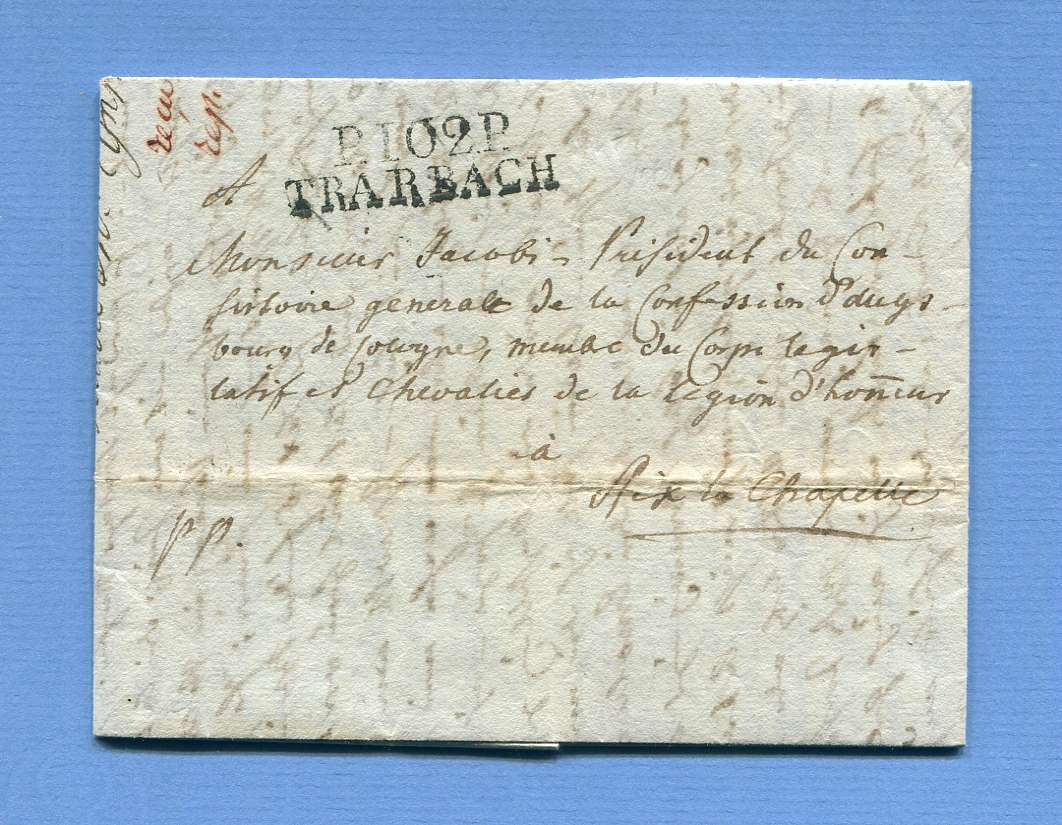 reçu
rep.
P.102.P.
TRARBACH
A
Monsieur Jacobi - Président du Con-
sistoire generale de la Confession d'augs-
bourg de Cologne, membre du Corps legis-
latif et Chevalier de la Legion d'honneur
à
Aix la Chapelle
pp.